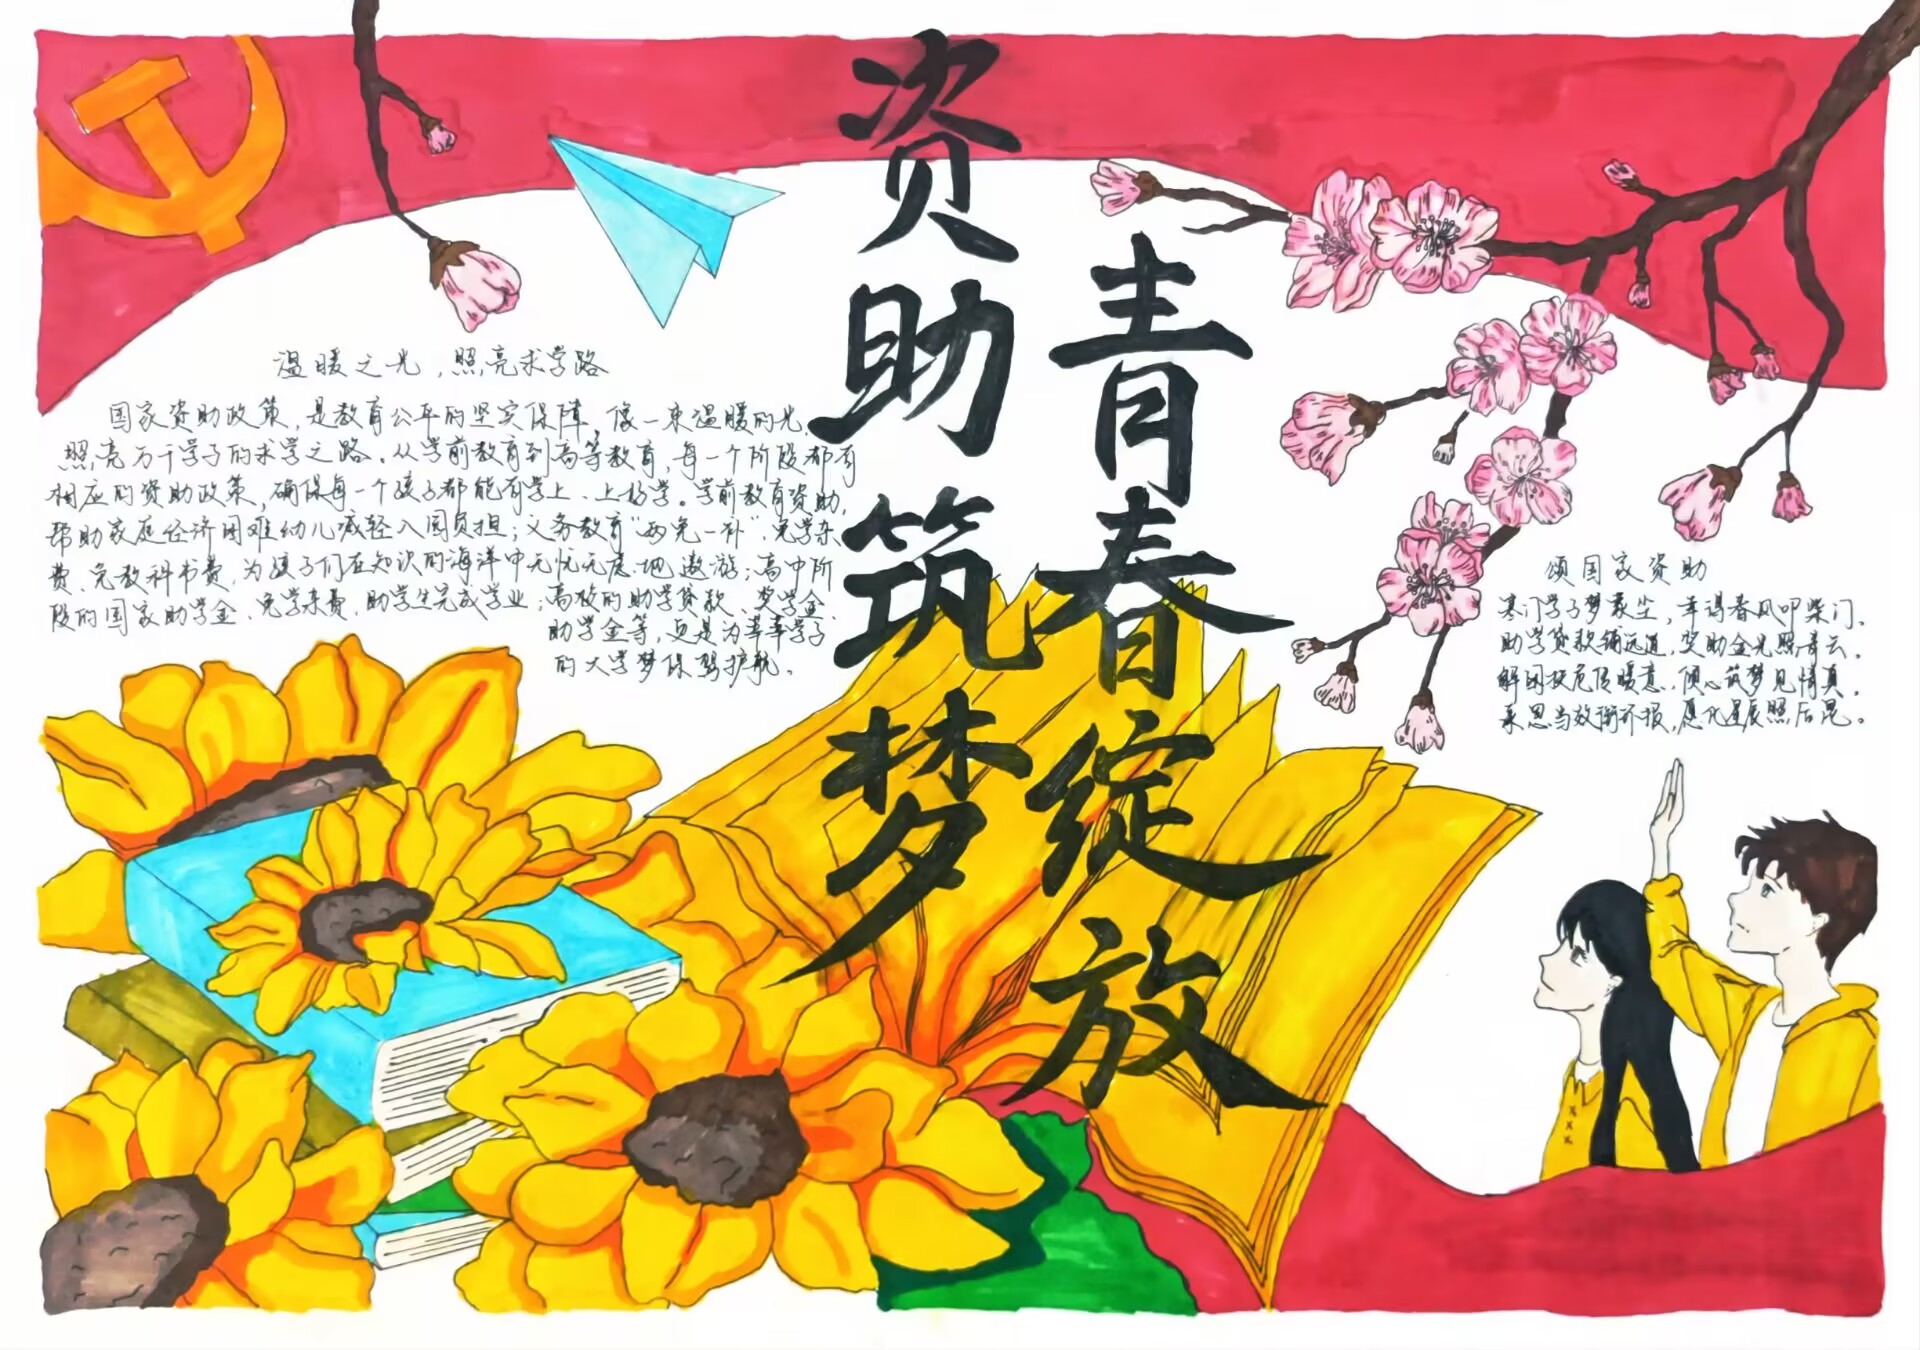 资助筑梦
青春绽放
温暖之光，照亮求学路
国家资助政策，是教育公平的坚实保障，像一束温暖的光，
照亮万千学子的求学之路。从学前教育到高等教育，每一个阶段都有
相应的资助政策，确保每一个孩子都能有学上、上好学。学前教育资助，
帮助家庭经济困难幼儿减轻入园负担；义务教育“两免一补”，免学杂
费、免教科书费，为孩子们在知识的海洋中无忧无虑地遨游；高中阶
段的国家助学金、免学杂费，助学生完成学业；高校的助学贷款、奖学金、
助学金等，更是为莘莘学子
的大学梦保驾护航。
颂国家资助
寒门学子梦蒙尘，幸得春风叩柴门。
助学贷款铺远道，奖助金光照青云。
解困扶危传暖意，倾心筑梦见情真。
承恩当效衔环报，愿化星辰照后昆。